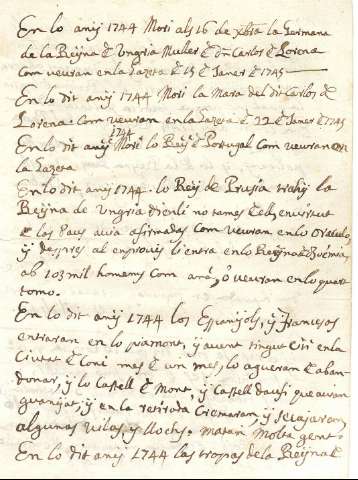 En lo anÿ 1744 Morí als 16 de xbre la Germana
de la Reÿna đ Ungria Muller đ Dn Carlos đ Lorena
Com veuran en la Gazeta đ 15 đ Janer đ 1745
En lo dit anÿ 1744 Morí la Mara del dit Carlos đ
Lorena com veuran en la Gazeta đ 22 đ Janer đ 1745
En lo dit anÿ 1744 Morí lo Reÿ đ Portugal com veuran en
la Gazeta
En lo dit anÿ 1744 lo Reÿ de Prusia trahÿ la
Reÿna de Ungria no tames đ ell, en virtut
đ las Paus avia afirmadas com veuran en lo Oraculo
ÿ despres al enprovis li entra en lo Reÿna đ Boemia,
ab 103 mil homens com ara, ó veuran en lo quart
tomo.
En lo dit anÿ 1744 los Espanÿols, ÿ francesos
entraran en lo piamont, ÿ avent tingut siti en la
Ciutat đ Coni mes đ un mes, lo agueran đ aban
donar, ÿ lo Castell đ Mont, ÿ Castell que avian
guanÿat, ÿ en la retirada Cremaran, ÿ
algunas vilas, ÿ llochs. matan Molta gent.
En lo dit anÿ 1744 las tropas de la Reÿna đ